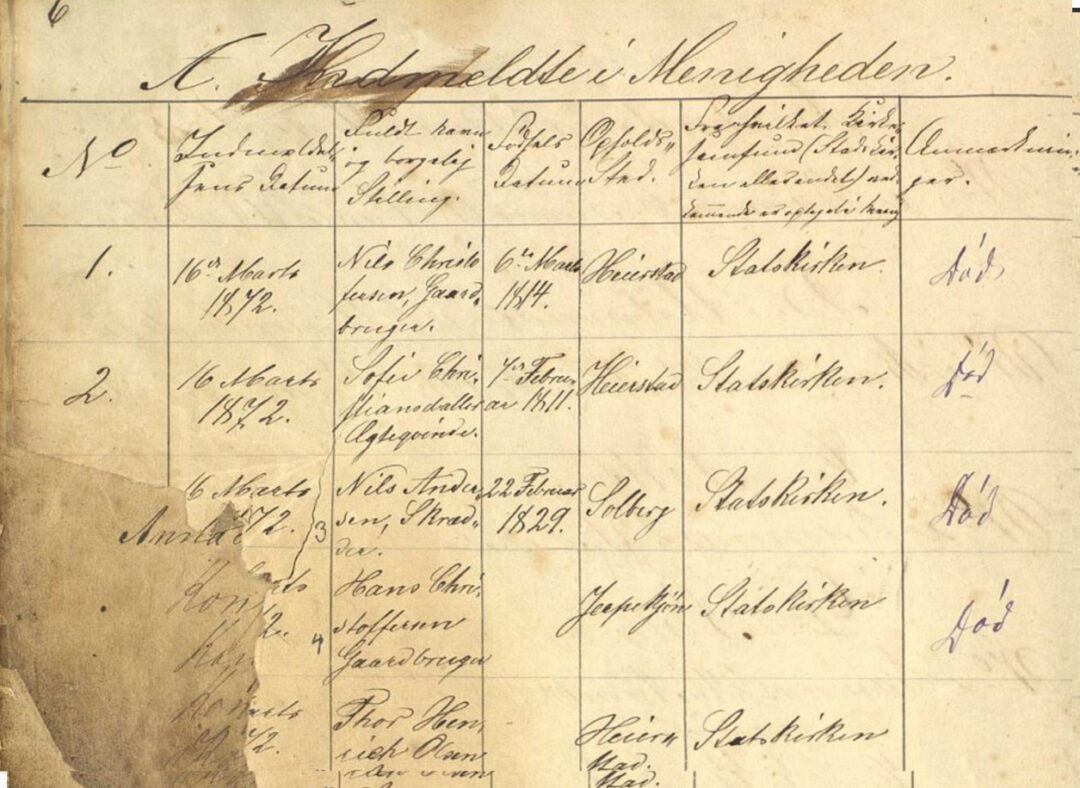 6
A. Indmeldte i Menigheden.
No
Indmeldel-
sens Datum
Fuldt Navn
og borgelig
Stilling.
Fødsels
Datum
Opholds-
Sted.
Fra hvilket Kirke-
samfund (Statskir-
ken eller andet) ved-
kommende
Anmærknin-
ger.
1.
16de Marts
1872.
Nils Christo
fersen, Gaard-
bruger.
6te Marts
1814.
Heierstad
Statskirken.
Død
2.
16 Marts
1872.
Sofie Chri-
stiansdatter
Ægteqvinde.
7de Febru-
ar 1811.
Heierstad
Statskirken.
Død
16 Marts
72.
3
Nils Ander-
sen, Skræd-
der.
22 Februar
1829.
Solberg
Statskirken.
Død
2.
4
Hans Chri-
stoffersen
Gaardbruger
Statskirken
Død
72.
Thor Hen-
rick Olsen
Heier-
stad.
Statskirken
stad.